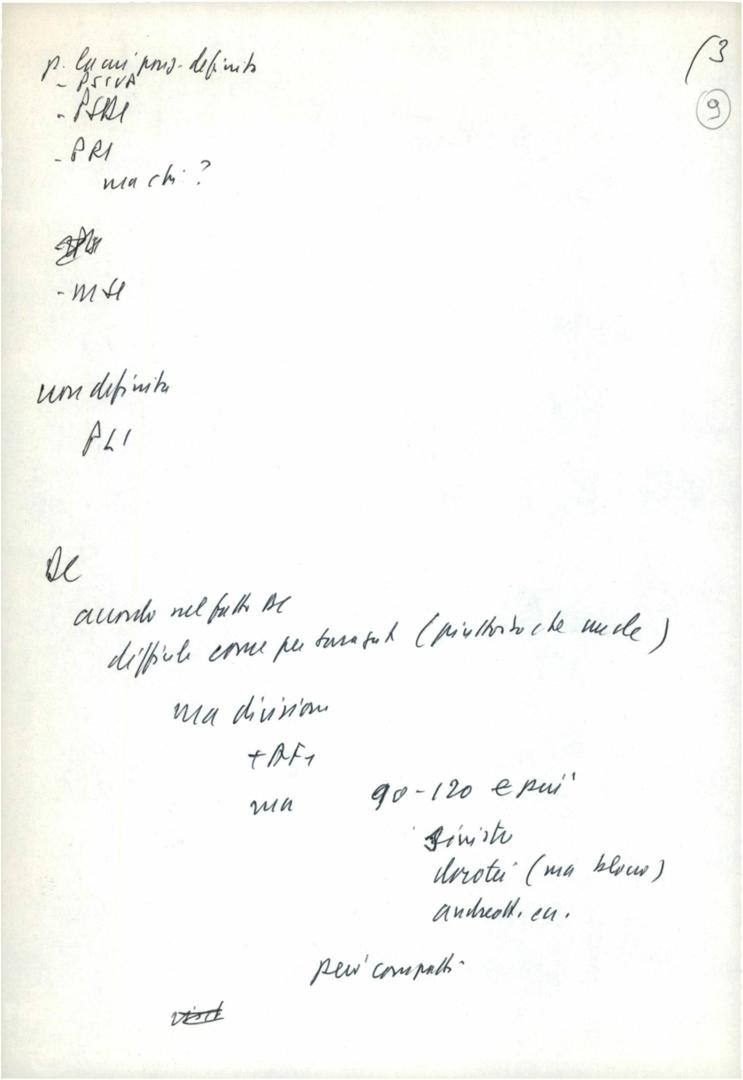 p. laici poss. definito
- PSIUP
- PSDI
- PRI
ma chi?
- MSI
non definito
PLI
DC
accordo nel fatto DC
difficile come per Saragat (piuttosto che male)
ma divisioni
+ AF,
ma 90-120 e più
Sinistre
dorotei (ma blocco)
andreott. ecc.
però compatti
3
9